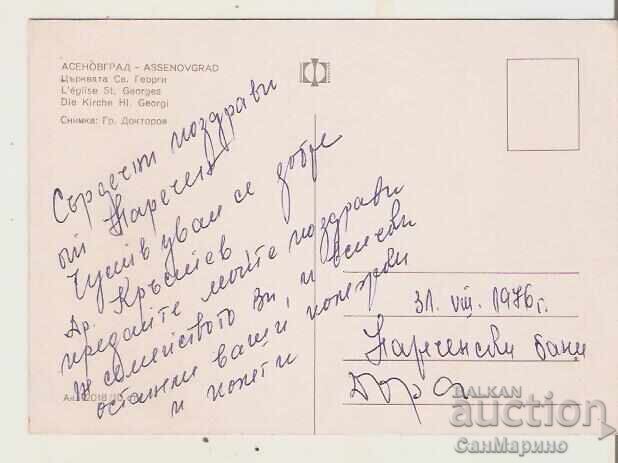 АСЕНОВГРАД – ASSENOVGRAD
Църквата Св. Георги
L'église St. Georges
Die Kirche Hl. Georgi
Снимка: Гр. Докторов
Сърдечни поздрави
от Наречен
Чувствувам се добре
Др. Кръстев
предайте моите поздрави
на семейството Ви, и всички
останали ваши
и
31. VIII. 1976 г.
Нареченски бани
Дора
BALKAN
auction
СанМарино